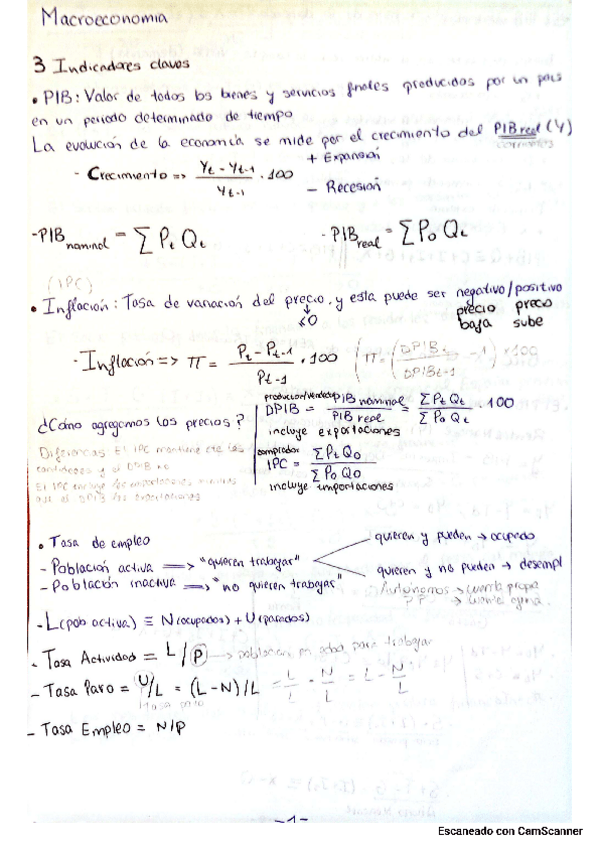 Macroeconomia
3 Indicadores claves
• PIB: Valor de todos los bienes y servicios finales producidos por un país
en un periodo determinado de tiempo
La evolución de la economía se mide por el crecimiento del PIB real (Y)
corrientes
- Crecimiento => (Yt - Yt-1) / Yt-1 · 100
+ Expansión
- Recesión
- PIB nominal = ∑ Pt Qt
- PIB real = ∑ P0 Qt
(IPC)
• Inflación: Tasa de variación del precio, y esta puede ser negativo/positivo
precio baja
precio sube
- Inflación => π = (Pt - Pt-1) / Pt-1 · 100 (π = (DPIBt / DPIBt-1 - 1) x100
¿Cómo agregamos los precios?
DPIB = PIB nominal / PIB real = ∑ Pt Qt / ∑ P0 Qt · 100
incluye exportaciones
comprador
IPC = ∑ Pt Q0 / ∑ P0 Q0
incluye importaciones
Diferencias El IPC mantiene cte las
cantidades y el DPIB no
El IPC incluye las importaciones mientras
que el DPIB las exportaciones
• Tasa de empleo
- Población activa => "quieren trabajar"
quieren y pueden → ocupado
quieren y no pueden → desempl
- Población inactiva => "no quieren trabajar"
Autónomos → cuenta propia
→ cuenta ajena
- L (pob activa) ≡ N (ocupados) + U (parados)
- Tasa Actividad = L/P → poblacion en edad para trabajar
- Tasa Paro = U/L = (L-N)/L = L/L - N/L = 1 - N/L
Tasa paro
- Tasa Empleo = N/P
-1-
Escaneado con CamScanner